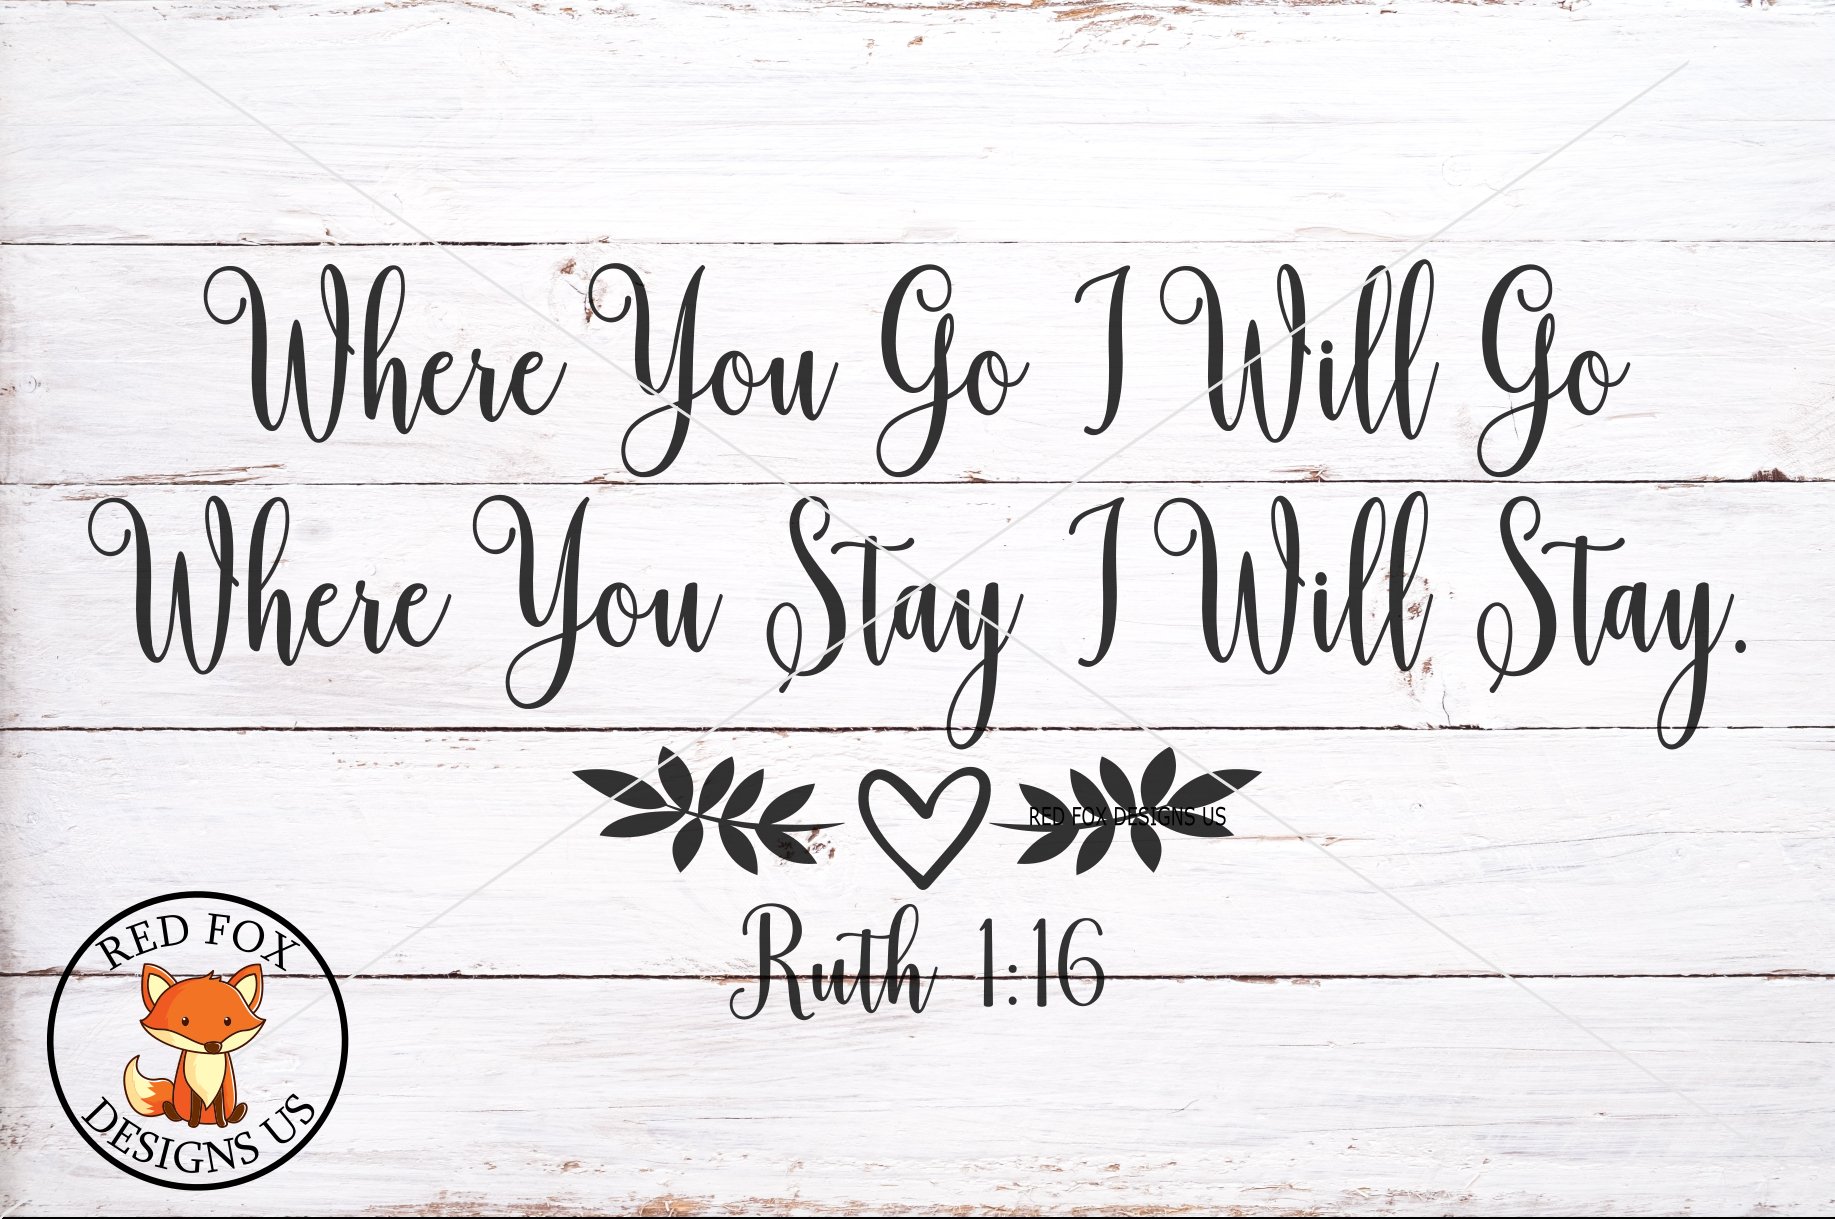 Where You Go I Will Go
Where You Stay I Will Stay.
RED FOX DESIGNS US
Ruth 1:16
RED FOX
DESIGNS US